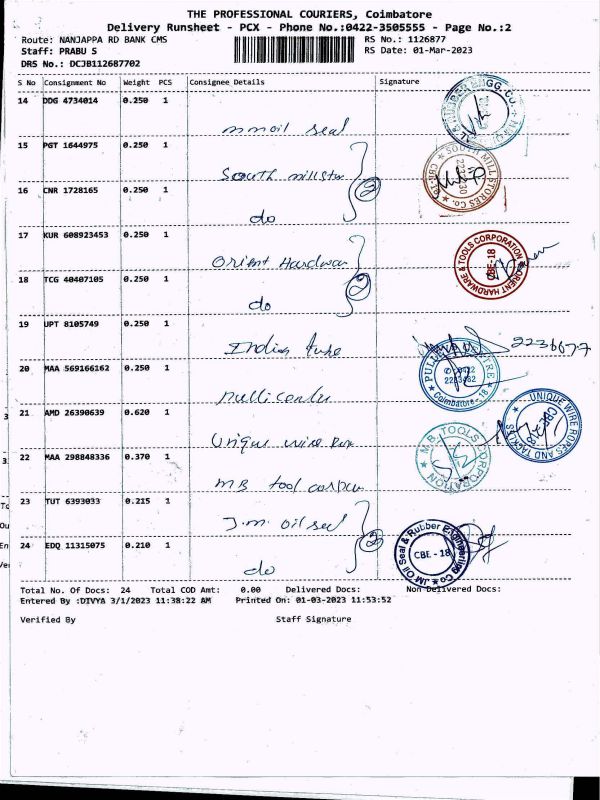 THE PROFESSIONAL COURIERS, Coimbatore
Delivery Runsheet - PCX - Phone No.:0422-3505555 - Page No.:2
Route: NANJAPPA RD BANK CMS
RS No.: 1126877
Staff: PRABU S
RS Date: 01-Mar-2023
DRS No.: DCJB112687702
S No Consignment No Weight PCS Consignee Details Signature
14 DDG 4734014 0.250 1
mm oil seal
15 PGT 1644975 0.250 1
South mill store
16 CNR 1728165 0.250 1
do
2
SOUTH MILL STORES Co.
17 KUR 608923453 0.250 1
Orient Hardwar
18 TCG 40407105 0.250 1
do
2
ORIENT HARDWARE & TOOLS CORPORATION
CBE-18
19 UPT 8105749 0.250 1
Indian tube
2236677
20 MAA 569166162 0.250 1
Coimbatore-18
21 AMD 26390639 0.620 1
Unique wire
UNIQUE WIRE ROPES AND TACKLES
22 MAA 298848336 0.370 1
MB tool
M.B. TOOLS CORPORATION
23 TUT 6393033 0.215 1
J.m. oil seal
24 EDQ 11315075 0.210 1
do
2
JM Oil Seal & Rubber Engineering Co
CBE - 18
Total No. Of Docs: 24 Total COD Amt: 0.00 Delivered Docs: Non Delivered Docs:
Entered By :DIVYA 3/1/2023 11:38:22 AM Printed On: 01-03-2023 11:53:52
Verified By Staff Signature